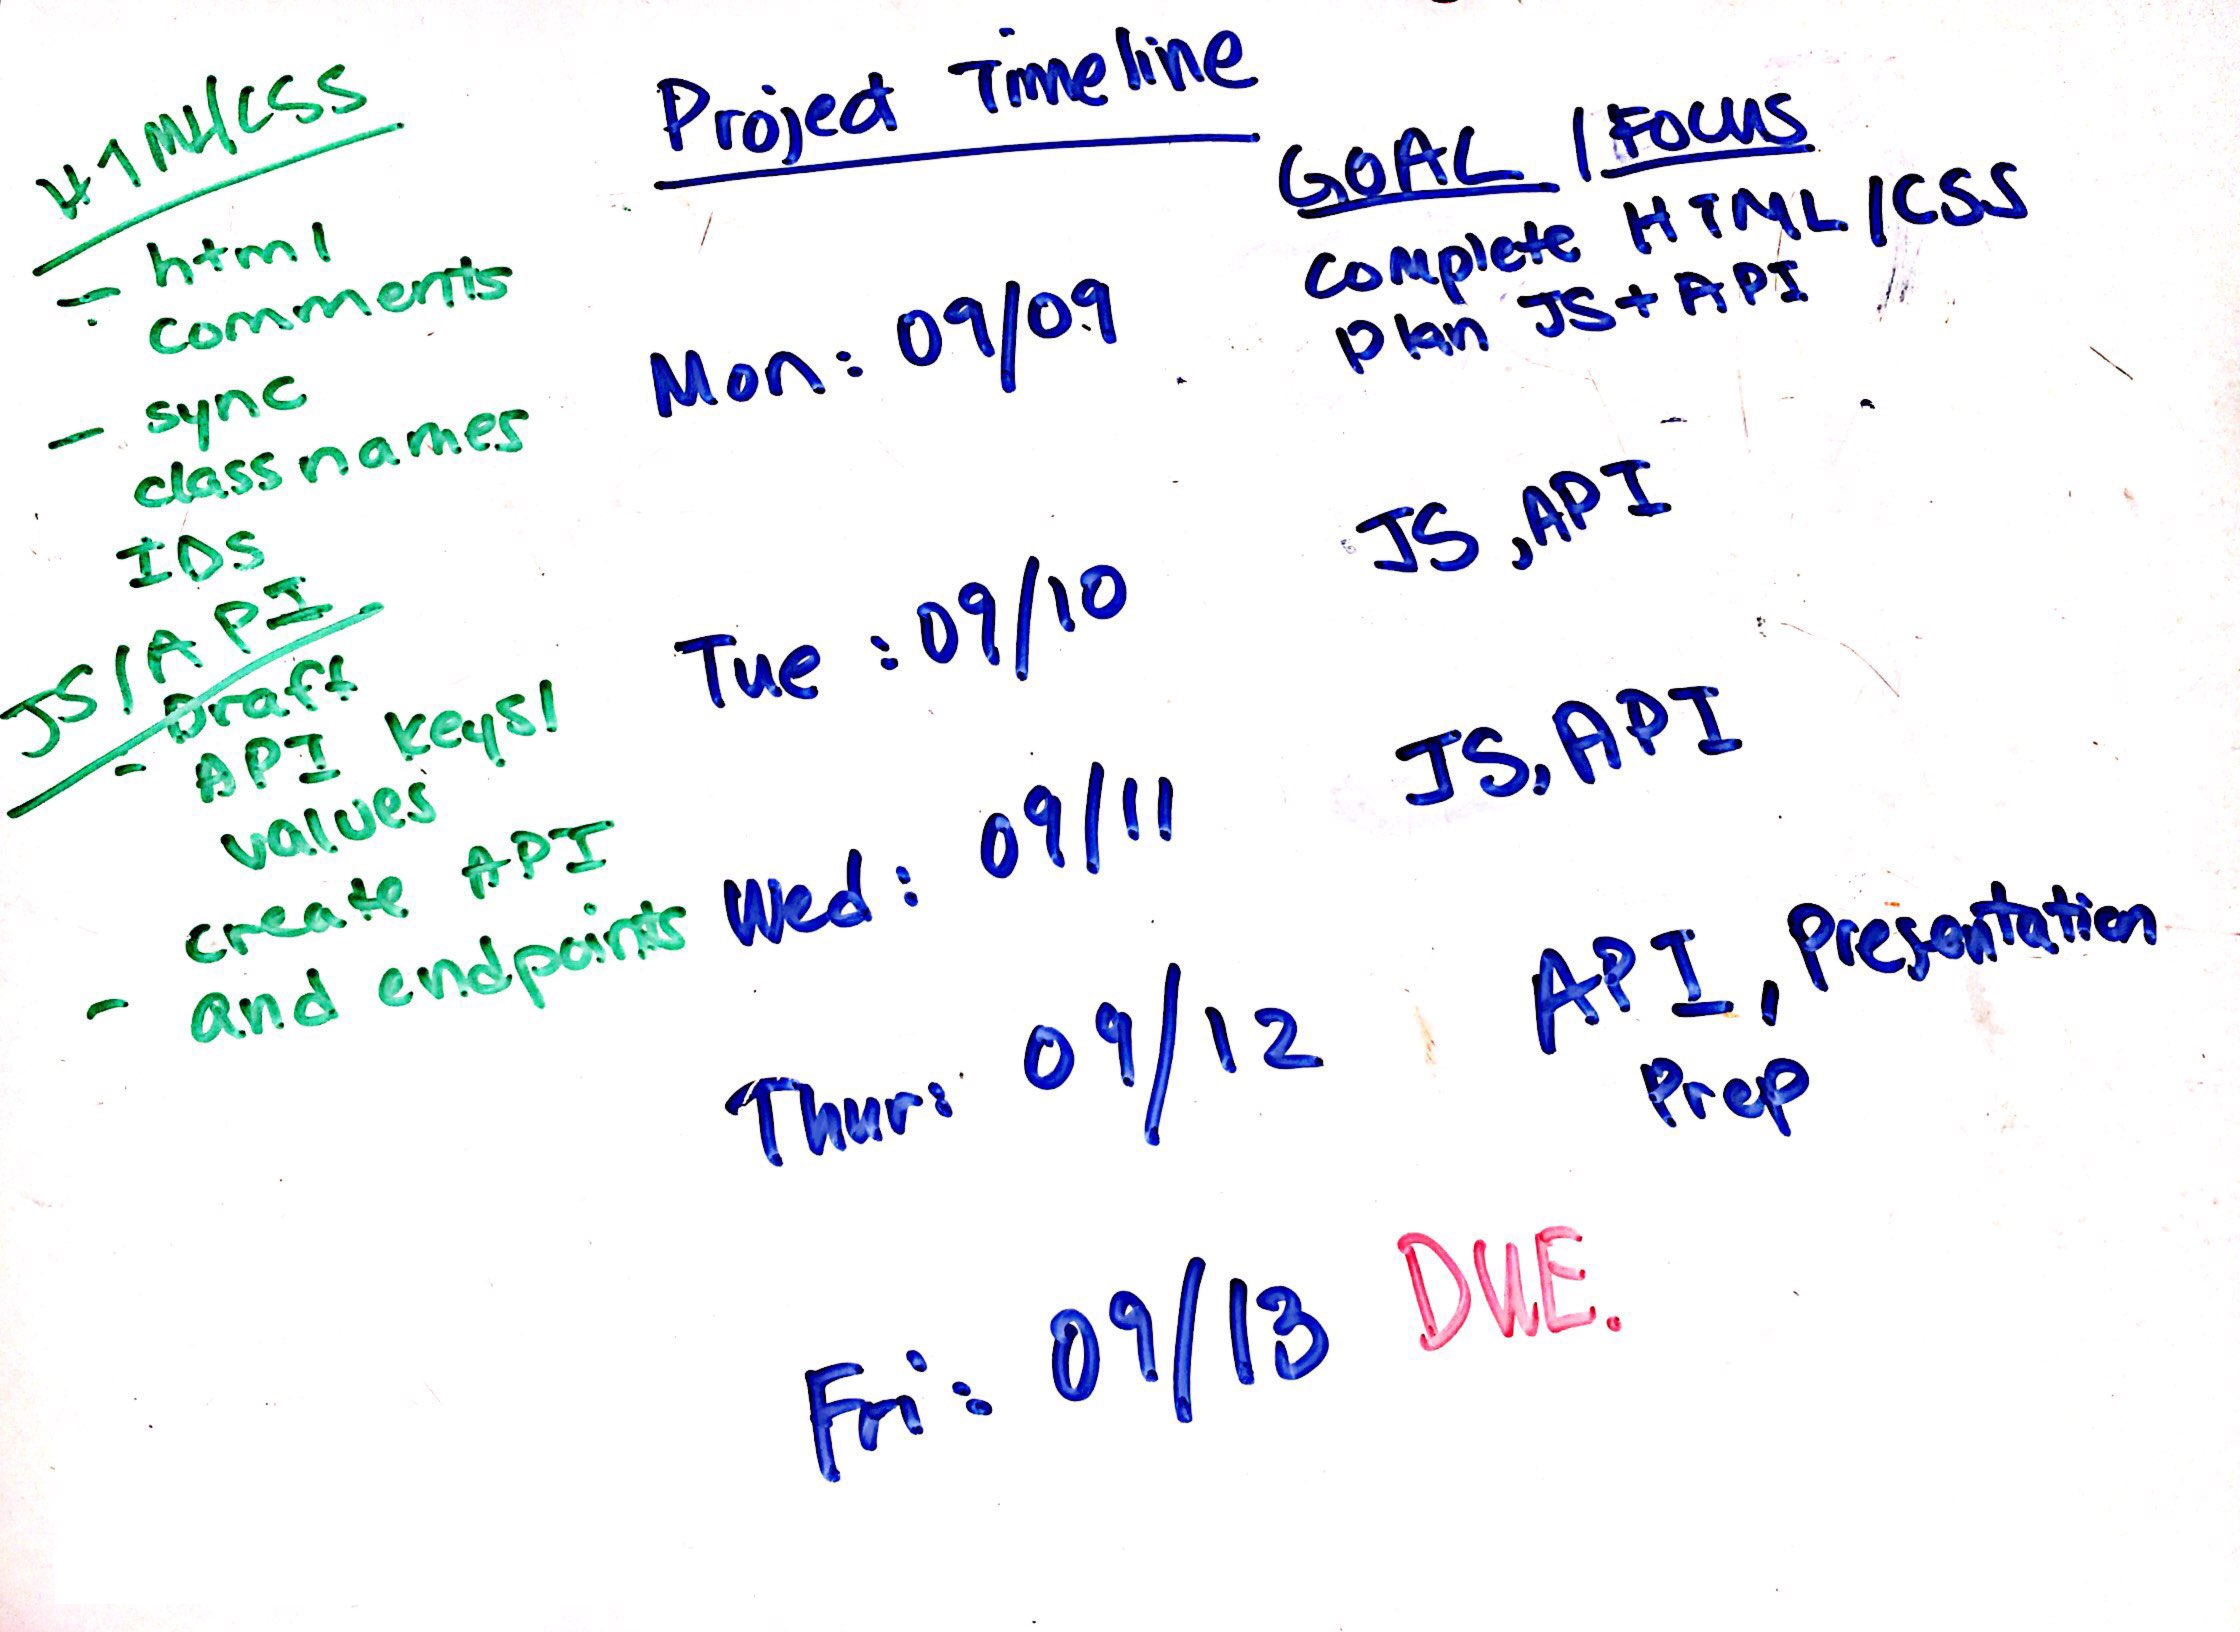 HTML/CSS
- html
comments
- sync
classnames
IDS
JS/API
- Draft
API keys/
values
create API
- and endpoints
Project Timeline
GOAL / FOCUS
Mon: 09/09
complete HTML/CSS
plan JS + API
Tue: 09/10
JS, API
Wed: 09/11
JS, API
Thur: 09/12
API, Presentation
Prep
Fri: 09/13
DUE.